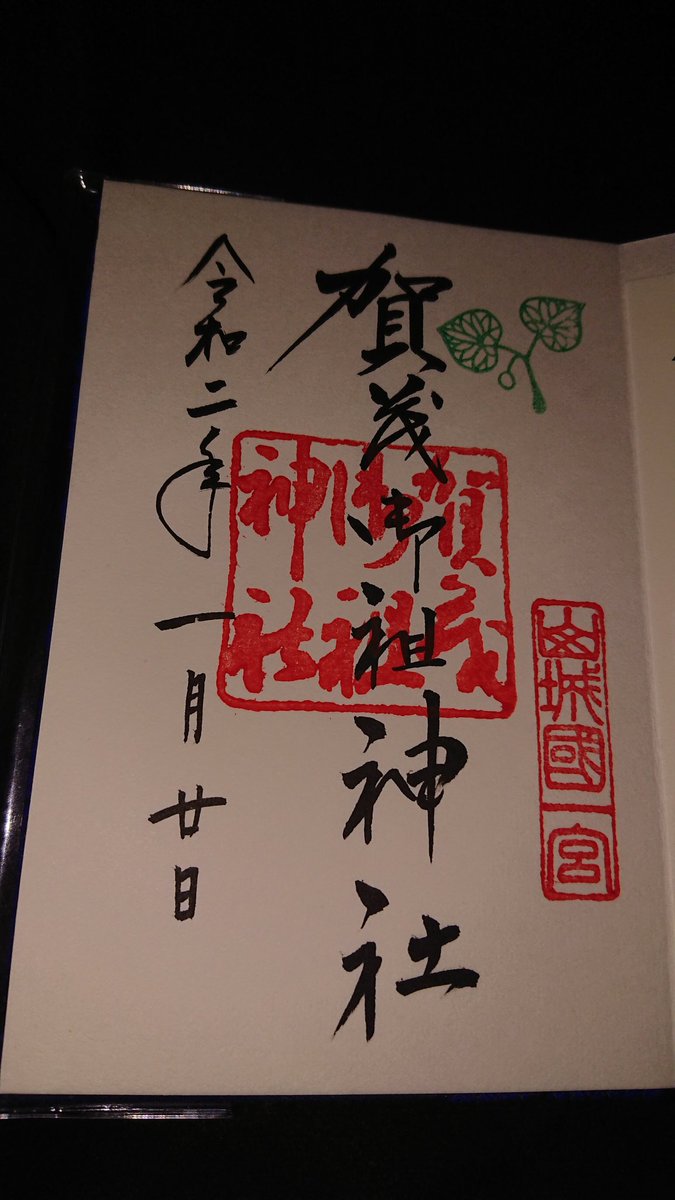 山城國一宮
賀茂御祖神社
賀茂
御祖
神社
令和二年一月廿日